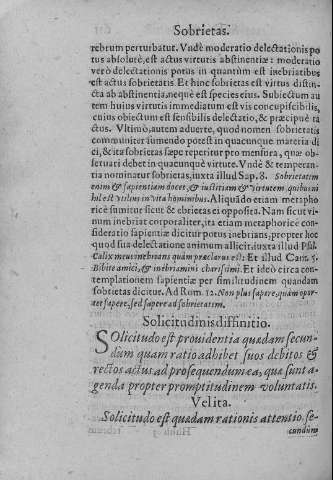 Sobrietas.
rebrum perturbatur. Vndè moderatio delectationis po
tus absolutè, est actus virtutis abstinentiæ: moderatio
verò delectationis potus in quantùm est inebriatibus
est actus sobrietatis Et hinc sobrietas est virtus distin-
cta ab abstinentia, neque est species eius. Subiectum au
tem huius virtutis immediatum est vis concupiscibilis,
cuius obiectum est sensibilis delectatio, & præcipuè ta
ctus. Vltimò, autem aduerte, quod nomen sobrietatis
communiter sumendo potest in quacunque materia di
ci, & ita sobrietas sæpe repetitur pro mensura, quæ ob-
seruari debet in quacunque virtute. Vndè & temperan-
tia nominatur sobrietas, iuxta illud Sap. 8. Sobrietatem
enim & sapientiam docet, & iustitiam & virtutem, quibus ni
hil est vtilius in vita hominibus. Aliquãdo etiam metapho
ricè sumitur sicut & ebrietas ei opposita. Nam sicut vi-
num inebriat corporaliter, ita etiam metaphoricè con-
sideratio sapientiæ dicitur potus inebrians, propter hoc
quod sua delectatione animum allicit: iuxta illud Psal.
Calix meus inebrians quàm præclarus est: Et illud Cant. 5.
Bibite amici, & inebriamini charissimi. Et ideò circa con-
templationem sapientiæ per similitudinem quandam
sobrietas dicitur. Ad Rom. 12. Non plus sapere, quàm opor
tet sapere, sed sapere ad sobrietatem.
Solicitudinis diffinitio.
Solicitudo est prouidentia quædam secun-
dum quam ratio adhibet suos debitos &
rectos actus ad prosequendum ea, quæ sunt a-
genda propter promptitudinem voluntatis.
Vel ita.
Solicitudo est quædam rationis attentio, se-
cundùm